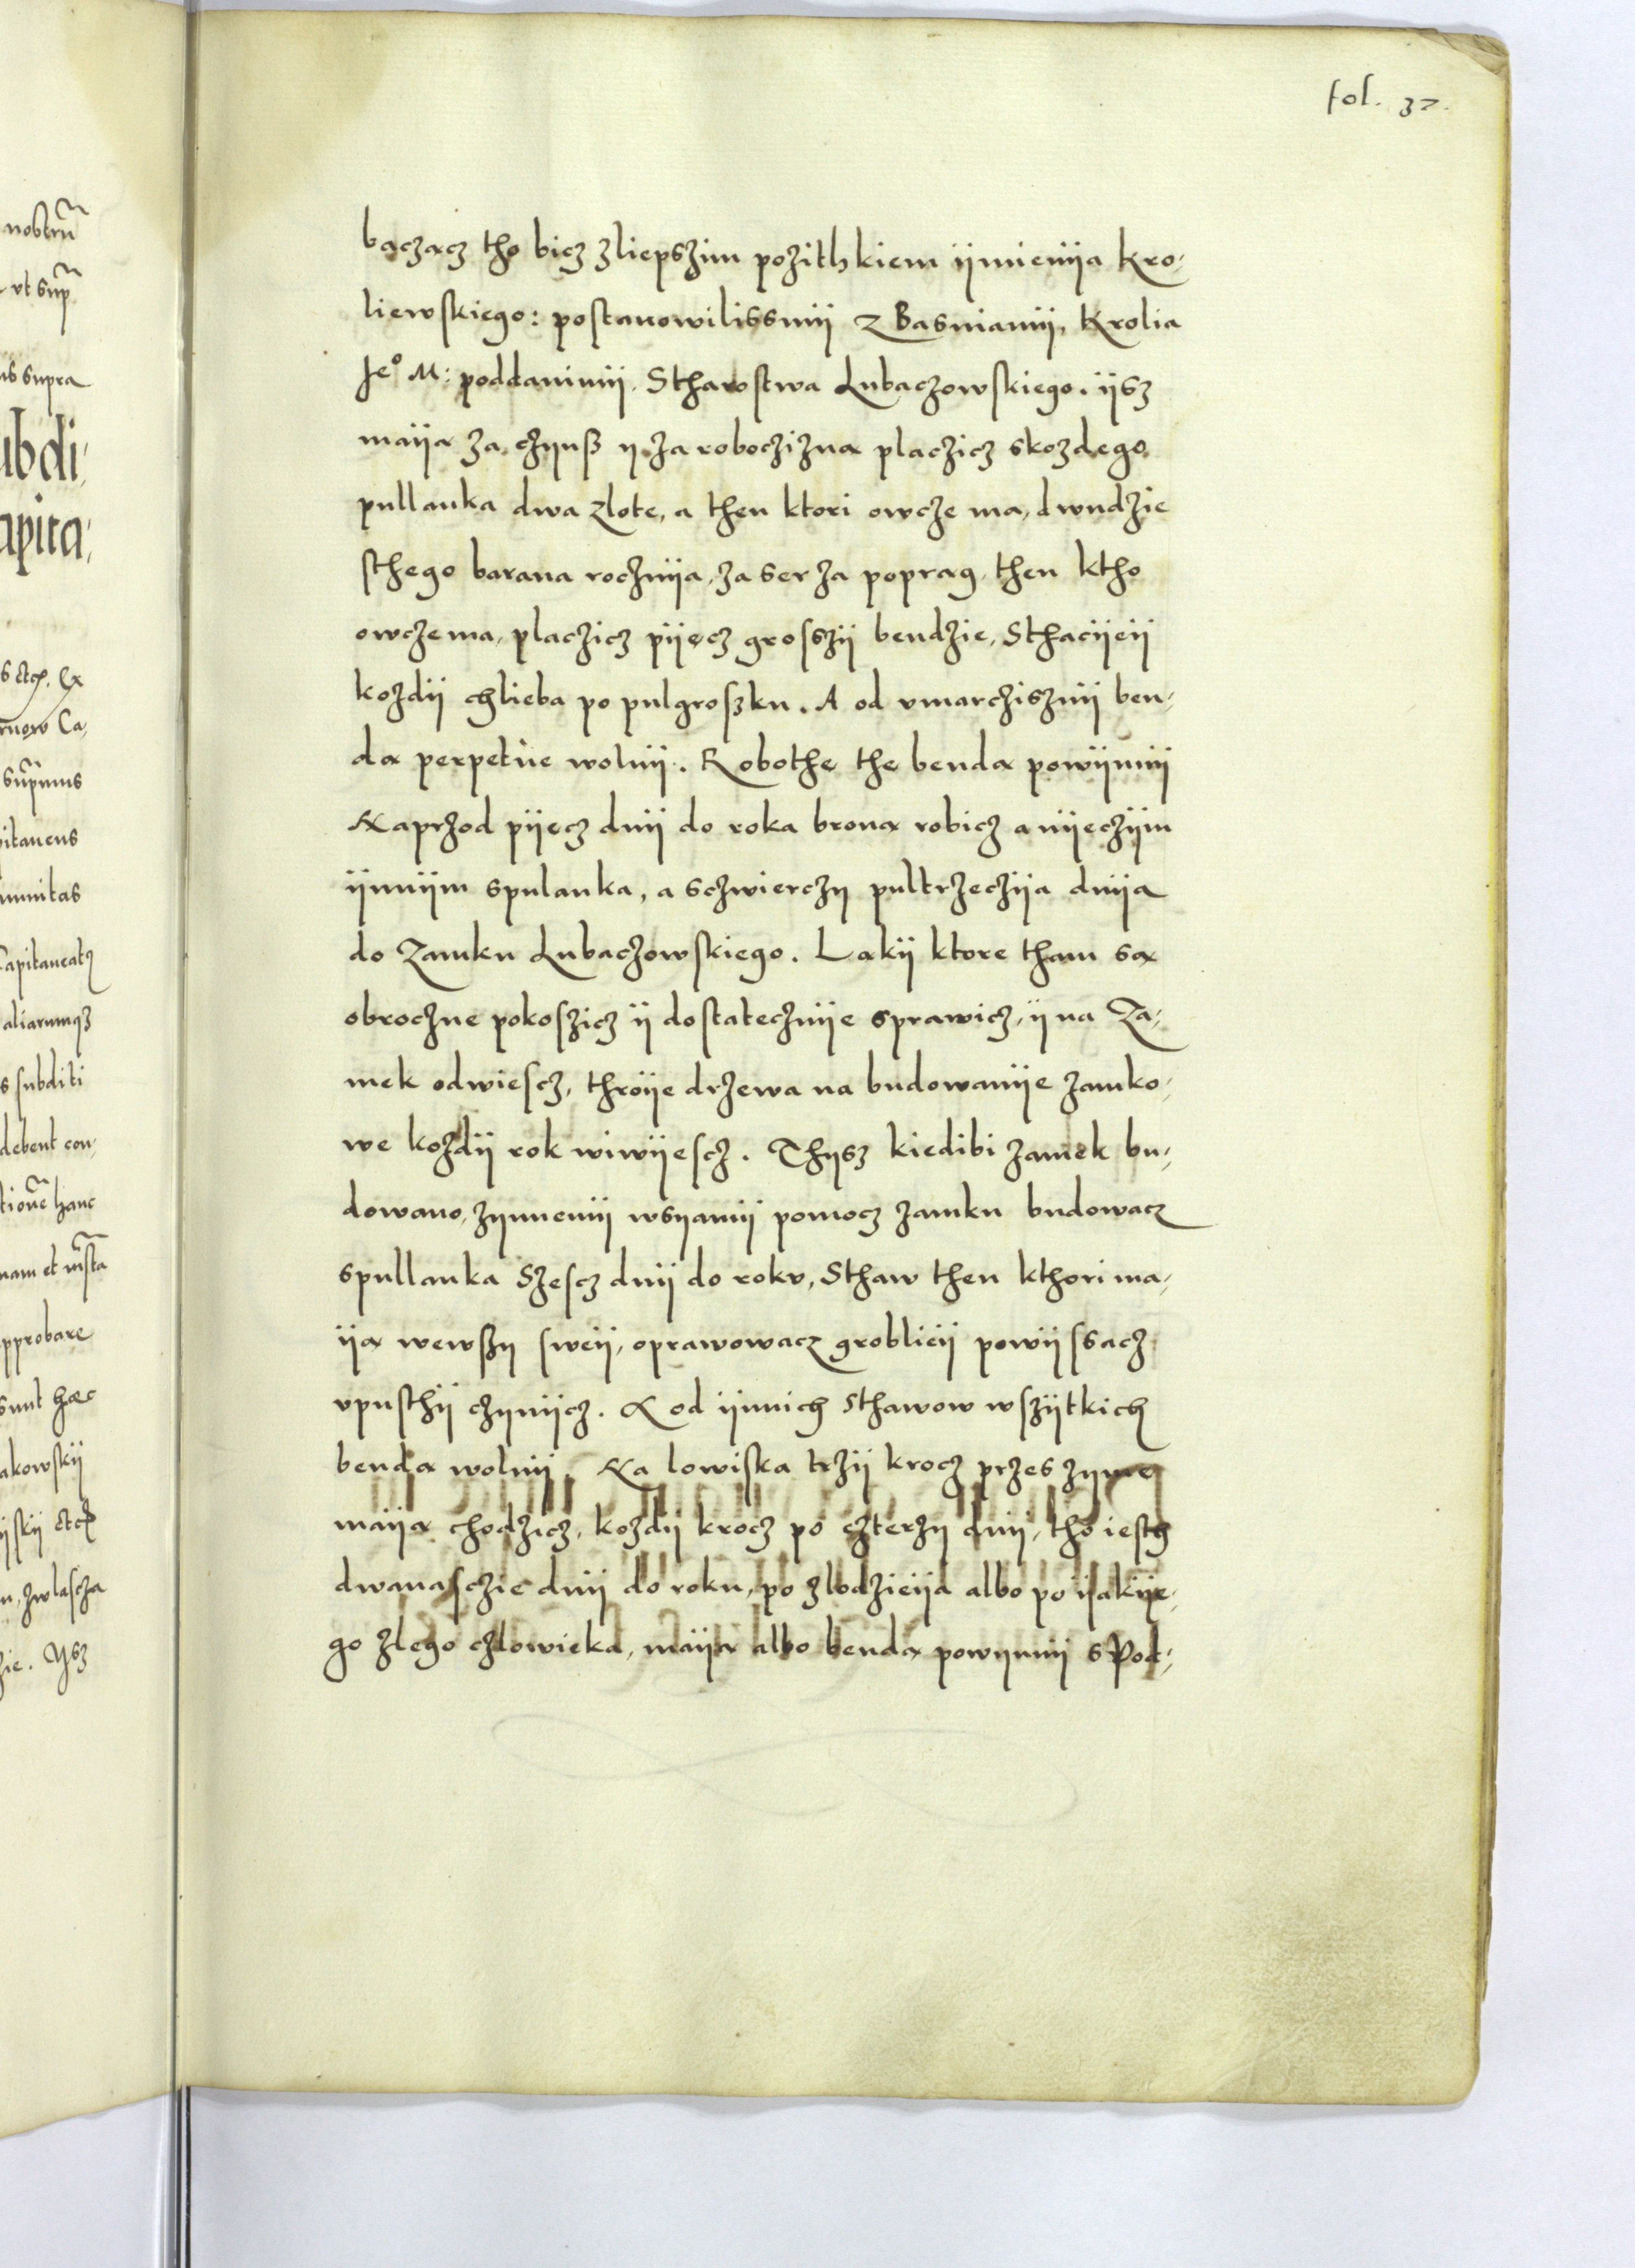 fol. 32.
nostrũ
ut sup
us supra
ubdi,
apita,
Ca,
pitanens
munitas
aliarumqz
s subditi
debent con,
tionẽ hanc
nam et
approbare
sunt hæc
akowskij
zwlascza
zie. Ysz
bączącz tho bicz zliepszim pozithkiem ijmienija Kro,
liewskiego: postanowilissmij z Basniamij, Krolia
Jeº M: poddanimij Stharostwa Lubaczowskiego. ijsz
maija za czijnß ij za roboczizną placzicz skozdego
pullanka dwa zlote, a then ktori owcze ma, dwudzie
sthego barana rocznija, za ser za poprąg, then ktho
owcze ma, placzicz pijęcz groszij bendzie, Sthacijeij
kozdij chlieba po pulgroszku. A od umarcziznij ben,
dą perpetue wolnij. Robothe the bendą powijnnij
Naprzod pijęcz dnij do roka broną robicz a nijeczijm
ijnnijm spulanka, a sczwierczij pultrzeczija dnija
do Zamku Lubaczowskiego. Ląkij ktore tham są
obroczne pokoszicz ij dostatecznije sprawicz, ij na Za,
mek odwiescz, throije drzewa na budowanije zamko,
we kozdij rok wiwijescz. Thijsz kiedibi zamek bu,
dowano, zijnnemij wsijamij pomocz zamku budowacz
spullanka Szescz dnij do roku, Sthaw then kthori ma,
iją wewszij sweij, oprawowacz groblicij powijssacz
upusthij czijnijcz. A od ijnnich sthawow wszijtkich
bendą wolnij. Na lowiska trzij krocz przes zijmę
maiją chodzicz, kozdij krocz po czterzij dnij, tho iesth
dwanasczie dnij do roku, po zlodzieija albo po ijakije,
go zlego czlowieka, maiją albo bendą powijnnij s Pod,